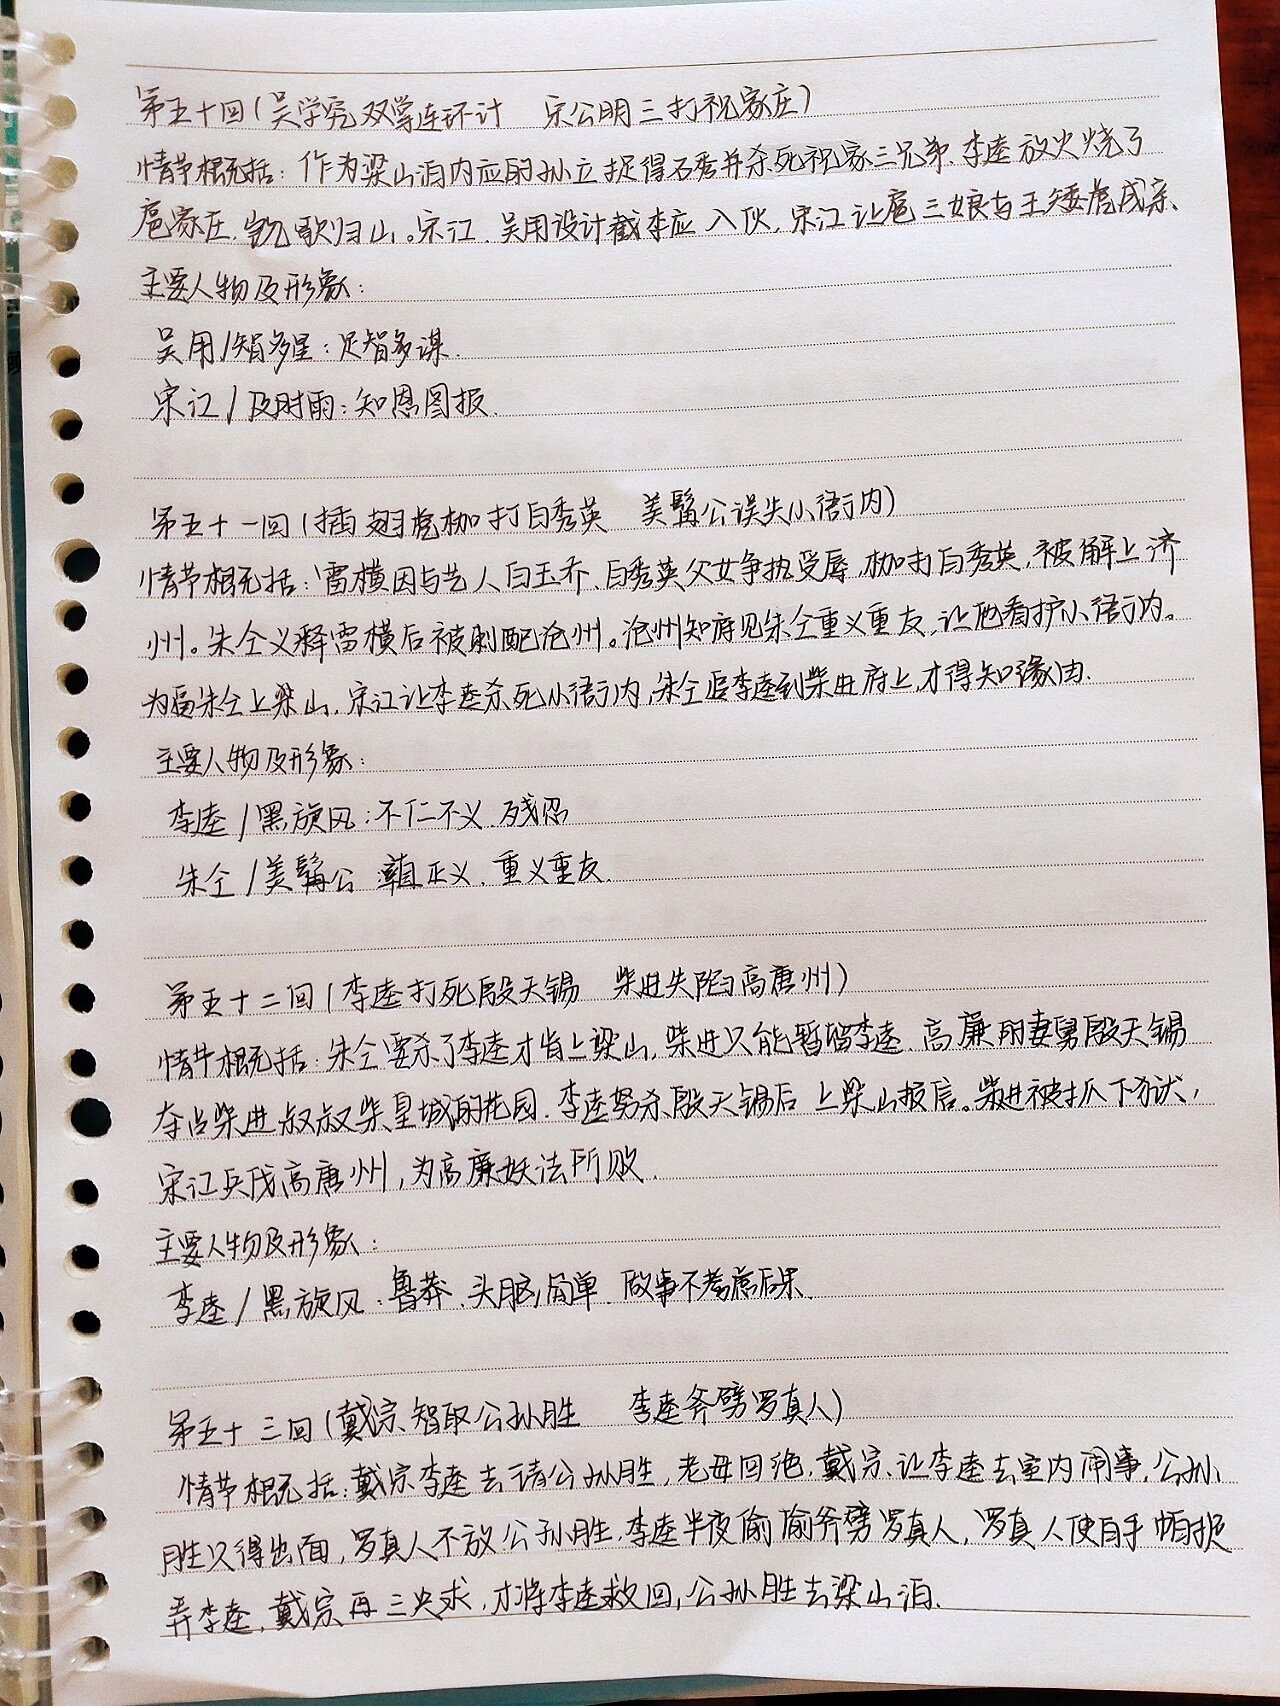 第五十回(吴学究双掌连环计 宋公明三打祝家庄)
情节概括:作为梁山泊内应的孙立捉得石秀并杀死祝家三兄弟.李逵放火烧了
扈家庄.凯歌归山。宋江.吴用设计截李应入伙,宋江让扈三娘与王矮虎成亲、
主要人物及形象:
吴用/智多星:足智多谋.
宋江/及时雨:知恩图报.
第五十一回(插翅虎枷打白秀英 美髯公误失小衙内)
情节概括:雷横因与艺人白玉乔.白秀英父女争执受辱,枷打白秀英,被解上济
州。朱仝义释雷横后被刺配沧州。沧州知府见朱仝重义重友,让他看护小衙内。
为逼朱仝上梁山,宋江让李逵杀死小衙内,朱仝追李逵到柴进府上,才得知缘由.
主要人物及形象:
李逵/黑旋风:不仁不义.残忍
朱仝/美髯公 正义.重义重友.
第五十二回(李逵打死殷天锡 柴进失陷高唐州)
情节概括:朱仝要杀了李逵才肯上梁山,柴进只能暂留李逵.高廉用妻舅殷天锡
夺占柴进叔叔柴皇城的花园.李逵怒杀殷天锡后上梁山报信。柴进被抓下狱,
宋江兵伐高唐州,为高廉妖法所败.
主要人物及形象:
李逵/黑旋风:鲁莽、头脑简单.做事不考虑后果.
第五十三回(戴宗智取公孙胜 李逵斧劈罗真人)
情节概括:戴宗李逵去请公孙胜,老母回绝,戴宗让李逵去室内闹事,公孙
胜只得出面,罗真人不放公孙胜.李逵半夜偷偷斧劈罗真人,罗真人使用手帕捉
弄李逵.戴宗再三央求,才将李逵救回,公孙胜去梁山泊.